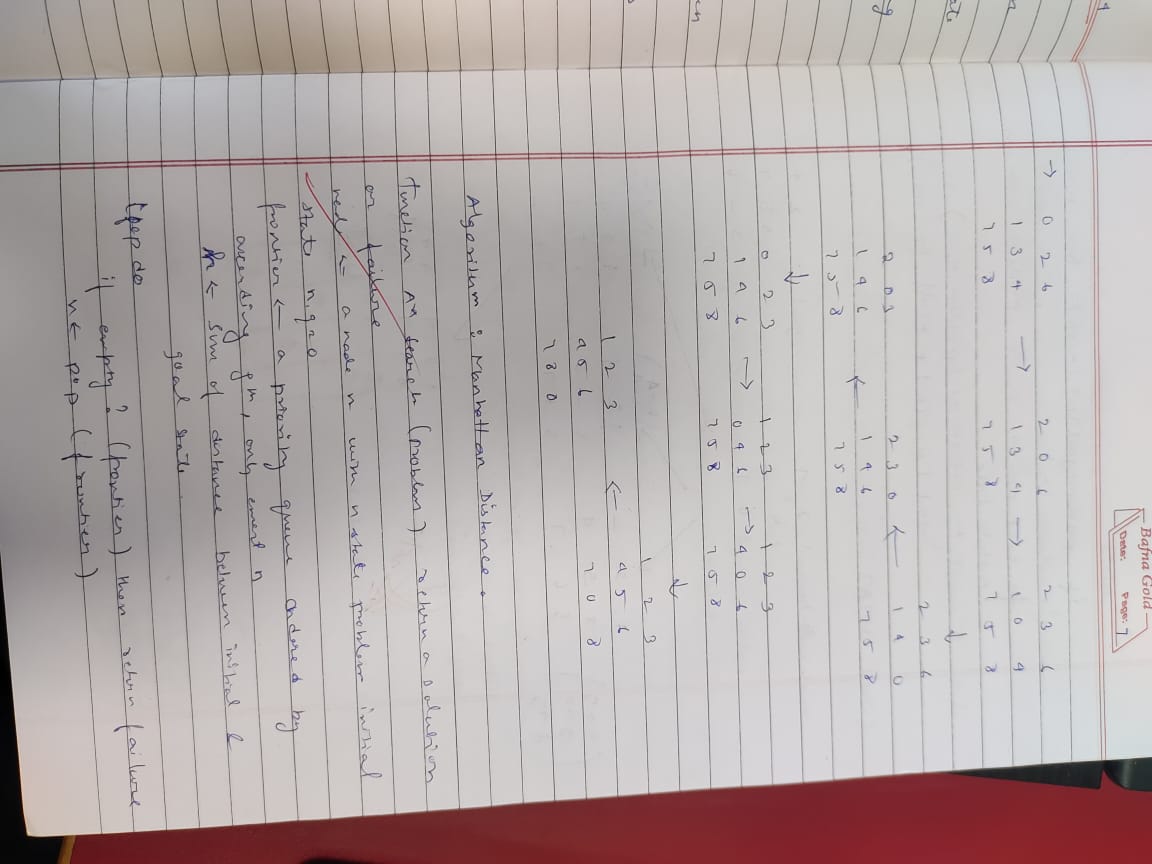 Bafna Gold
Date: Page: 7
→ 0 2 6 2 0 6 2 3 6
1 3 4 → 1 3 4 → 1 0 4
7 5 8 7 5 8 7 5 8
↓
2 3 6
2 0 3 2 3 0 ← 1 4 0
1 4 6 ← 1 4 6 7 5 8
7 5 8 7 5 8
↓
0 2 3 1 2 3 1 2 3
1 4 6 → 0 4 6 → 4 0 6
7 5 8 7 5 8 7 5 8
↓
1 2 3
1 2 3 ← 4 5 6
4 5 6 7 0 8
7 8 0
Algorithm : Manhattan Distance .
Function A* search (problem) return a solution
or failure
node ← a node n with n state problem initial
state n, g=0
frontier ← a priority queue ordered by
ascending g+h, only element n
h ← sum of distance between initial &
goal state .
loop do
if empty? (frontier) then return failure
n ← pop (frontier)